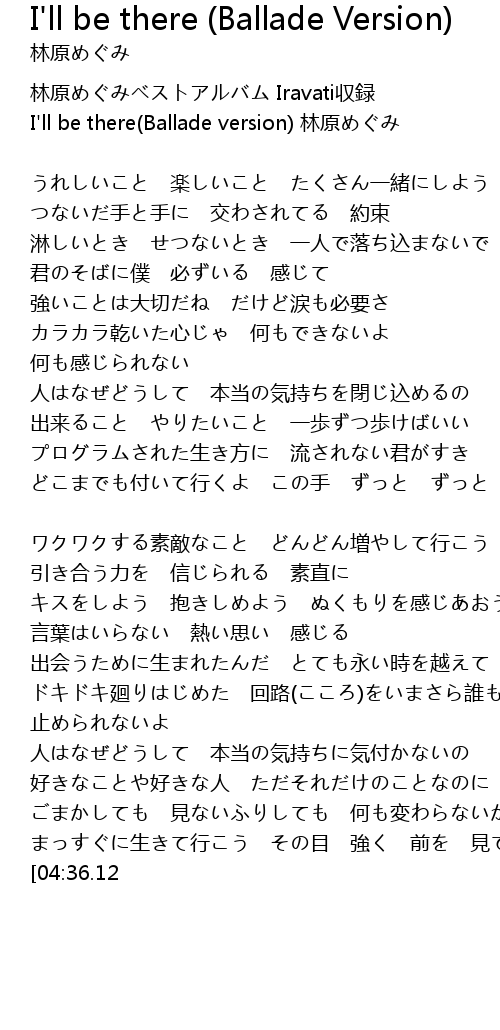 I'll be there (Ballade Version)
林原めぐみ
林原めぐみベストアルバム Iravati収録
I'll be there(Ballade version) 林原めぐみ
うれしいこと　楽しいこと　たくさん一緒にしよう
つないだ手と手に　交わされてる　約束
淋しいとき　せつないとき　一人で落ち込まないで
君のそばに僕　必ずいる　感じて
強いことは大切だね　だけど涙も必要さ
カラカラ乾いた心じゃ　何もできないよ
何も感じられない
人はなぜどうして　本当の気持ちを閉じ込めるの
出来ること　やりたいこと　一歩ずつ歩けばいい
プログラムされた生き方に　流されない君がすき
どこまでも付いて行くよ　この手　ずっと　ずっと
ワクワクする素敵なこと　どんどん増やして行こう
引き合う力を　信じられる　素直に
キスをしよう　抱きしめよう　ぬくもりを感じあおう
言葉はいらない　熱い思い　感じる
出会うために生まれたんだ　とても永い時を越えて
ドキドキ廻りはじめた　回路(こころ)をいまさら誰も
止められないよ
人はなぜどうして　本当の気持ちに気付かないの
好きなことや好きな人　ただそれだけのことなのに
ごまかしても　見ないふりしても　何も変わらないか
まっすぐに生きて行こう　その目　強く　前を　見て
[04:36.12